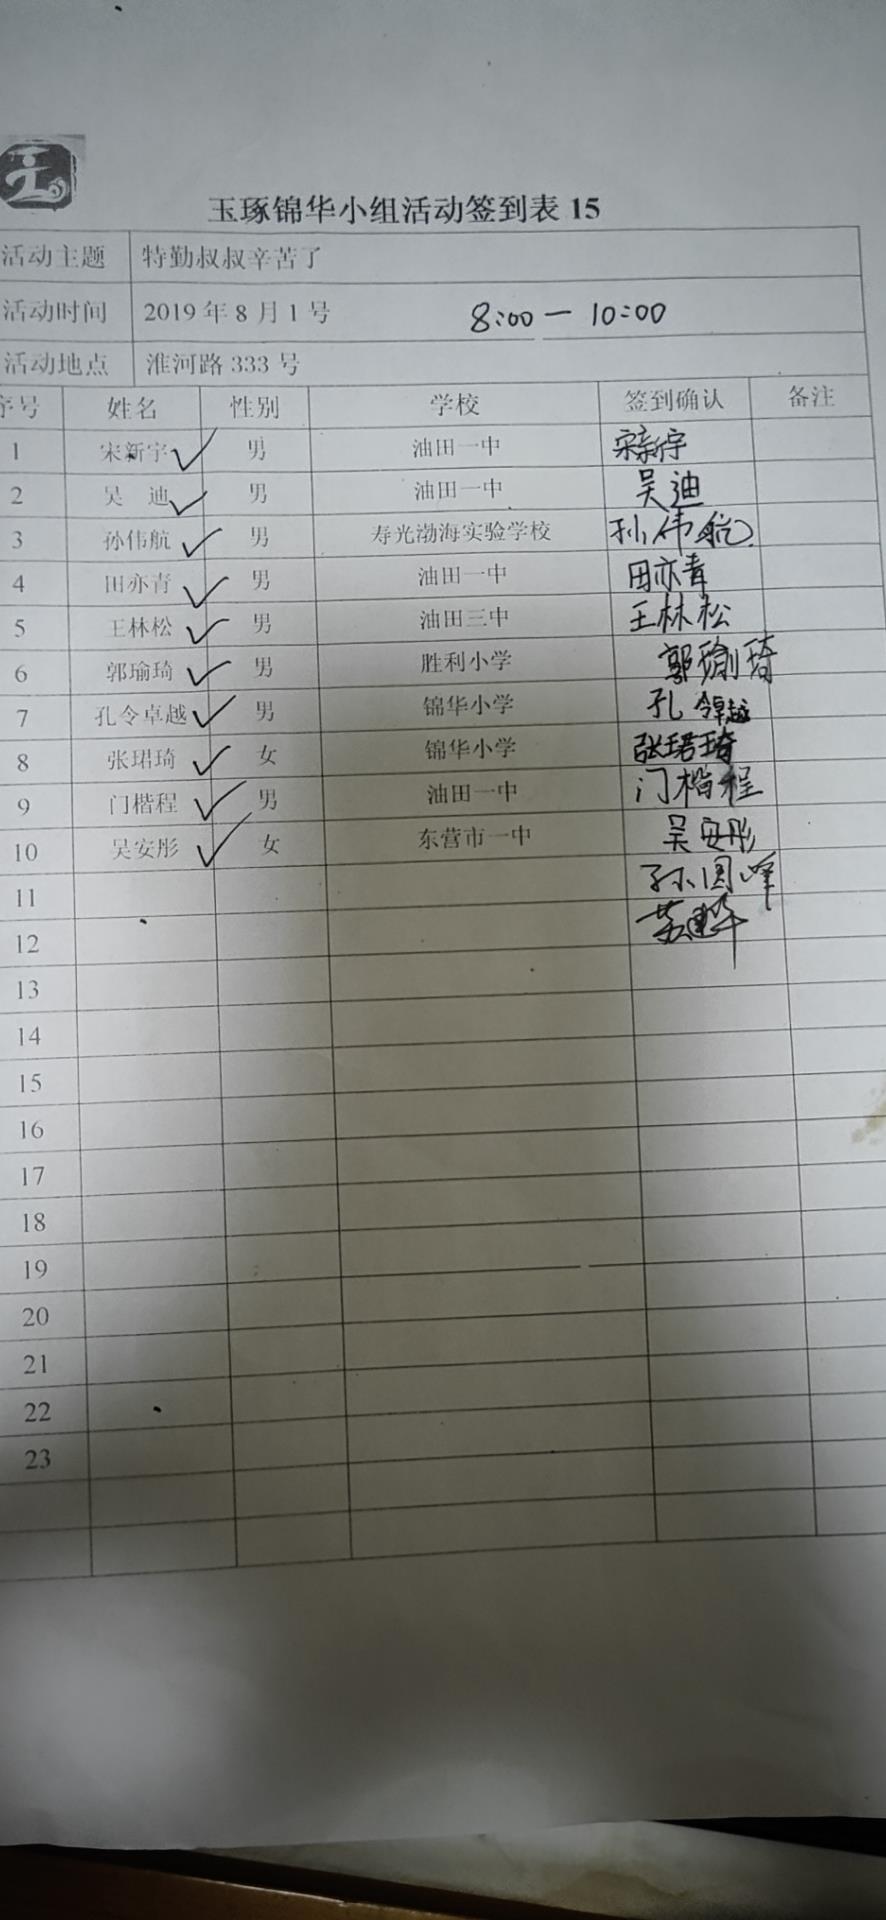 玉琢锦华小组活动签到表 15
活动主题 特勤叔叔辛苦了
活动时间 2019 年 8 月 1 号 8:00 — 10:00
活动地点 淮河路 333 号
序号 姓名 性别 学校 签到确认 备注
1 宋新宇 ✓ 男 油田一中 宋新宇
2 吴 迪 ✓ 男 油田一中 吴迪
3 孙伟航 ✓ 男 寿光渤海实验学校 孙伟航
4 田亦青 ✓ 男 油田一中 田亦青
5 王林松 ✓ 男 油田三中 王林松
6 郭瑜琦 ✓ 男 胜利小学 郭瑜琦
7 孔令卓越 ✓ 男 锦华小学 孔令卓越
8 张珺琦 ✓ 女 锦华小学 张珺琦
9 门楷程 ✓ 男 油田一中 门楷程
10 吴安彤 ✓ 女 东营市一中 吴安彤
11 孙国峰
12
13
14
15
16
17
18
19
20
21
22
23